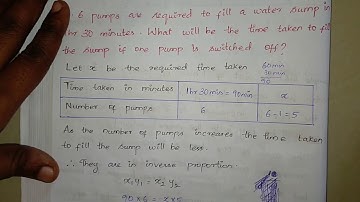 6 pumps are required to fill a water sump in
1hr 30 minutes. What will be the time taken to fill
the sump if one pump is switched off?
Let x be the required time taken
60min
30min
90
Time taken in minutes 1hr30min=90min x
Number of pumps 6 6-1=5
As the number of pumps increases the time taken
to fill the sump will be less.
∴ They are in inverse proportion.
x₁y₁ = x₂y₂
90×6 = x×5